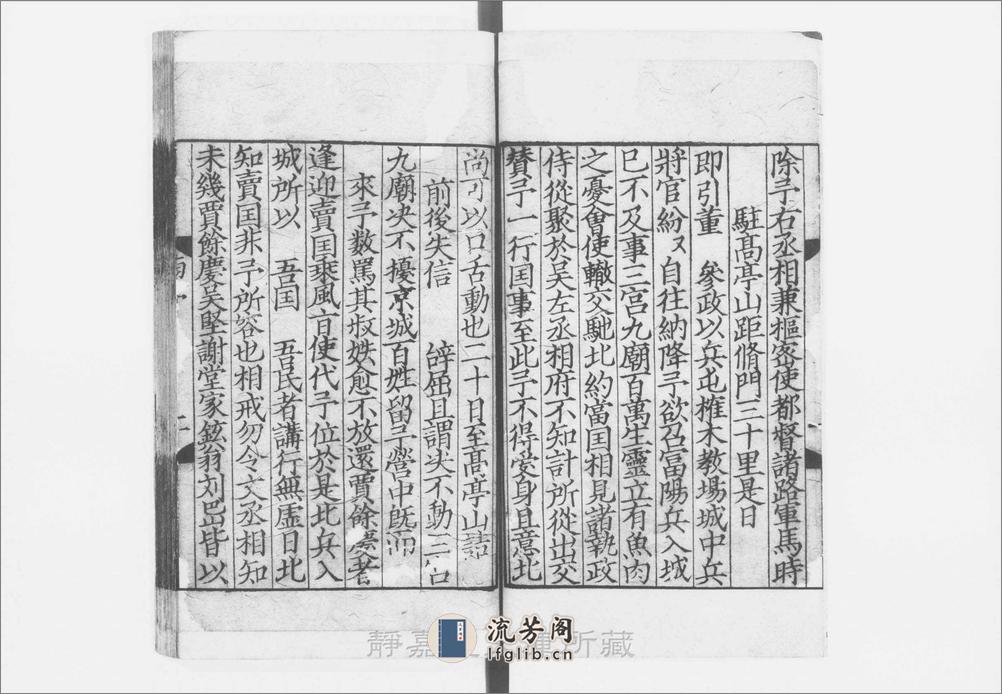 除予右丞相兼樞密使都督諸路軍馬時
駐髙亭山距脩門三十里是日
即引董　參政以兵屯榷木教場城中兵
將官紛〻自往納降予欲召富陽兵入城
已不及事三宫九廟百萬生靈立有魚肉
之憂會使轍交馳北約當囯相見諸執政
侍從聚於吴左丞相府不知計所從出交
賛予一行囯事至此予不得愛身且意北
尚可以口舌動也二十日至髙亭山詰
前後失信　辝屈且謂决不動三宫
九廟决不擾京城百姓留予營中既而
來予數罵其叔姪愈不放還賈餘慶者
逢迎賣囯乘風旨使代予位於是北兵入
城所以　吾囯　吾民者講行無虚日北
知賣囯非予所容也相戒勿令文丞相知
未幾賈餘慶吴堅謝堂家鉉翁刘岊皆以
二
靜嘉　所藏
流芳阁
lfglib.cn